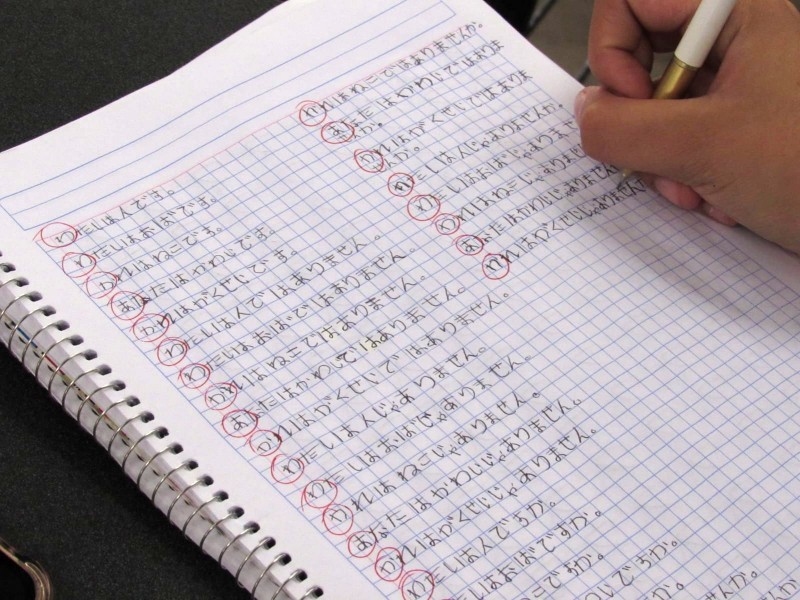 わたしは人です。
わたしはおばです。
かれはねこです。
あなたはかわじです。
かれはがくせいです。
わたしは人ではありません。
わたしはおばではありません。
かれはねこではありません。
あなたはかわじではありません。
かれはがくせいではありません。
わたしは人じゃありません。
わたしはおばじゃありません。
かれはねこじゃありません。
あなたはかわいじゃありません。
かれはがくせいじゃありません。
わたしは人ですか。
わたしはおばですか。
こですか。
じですか。
かれはねこではありませんか。
あなたはかわじではありま
せんか。
かれはがくせいではありま
せんか。
わたしは人じゃありませんか。
わたしはおばじゃありませ
かれはねこじゃありませ
あなたはかわじじゃありません
かれはがくせいじゃありません